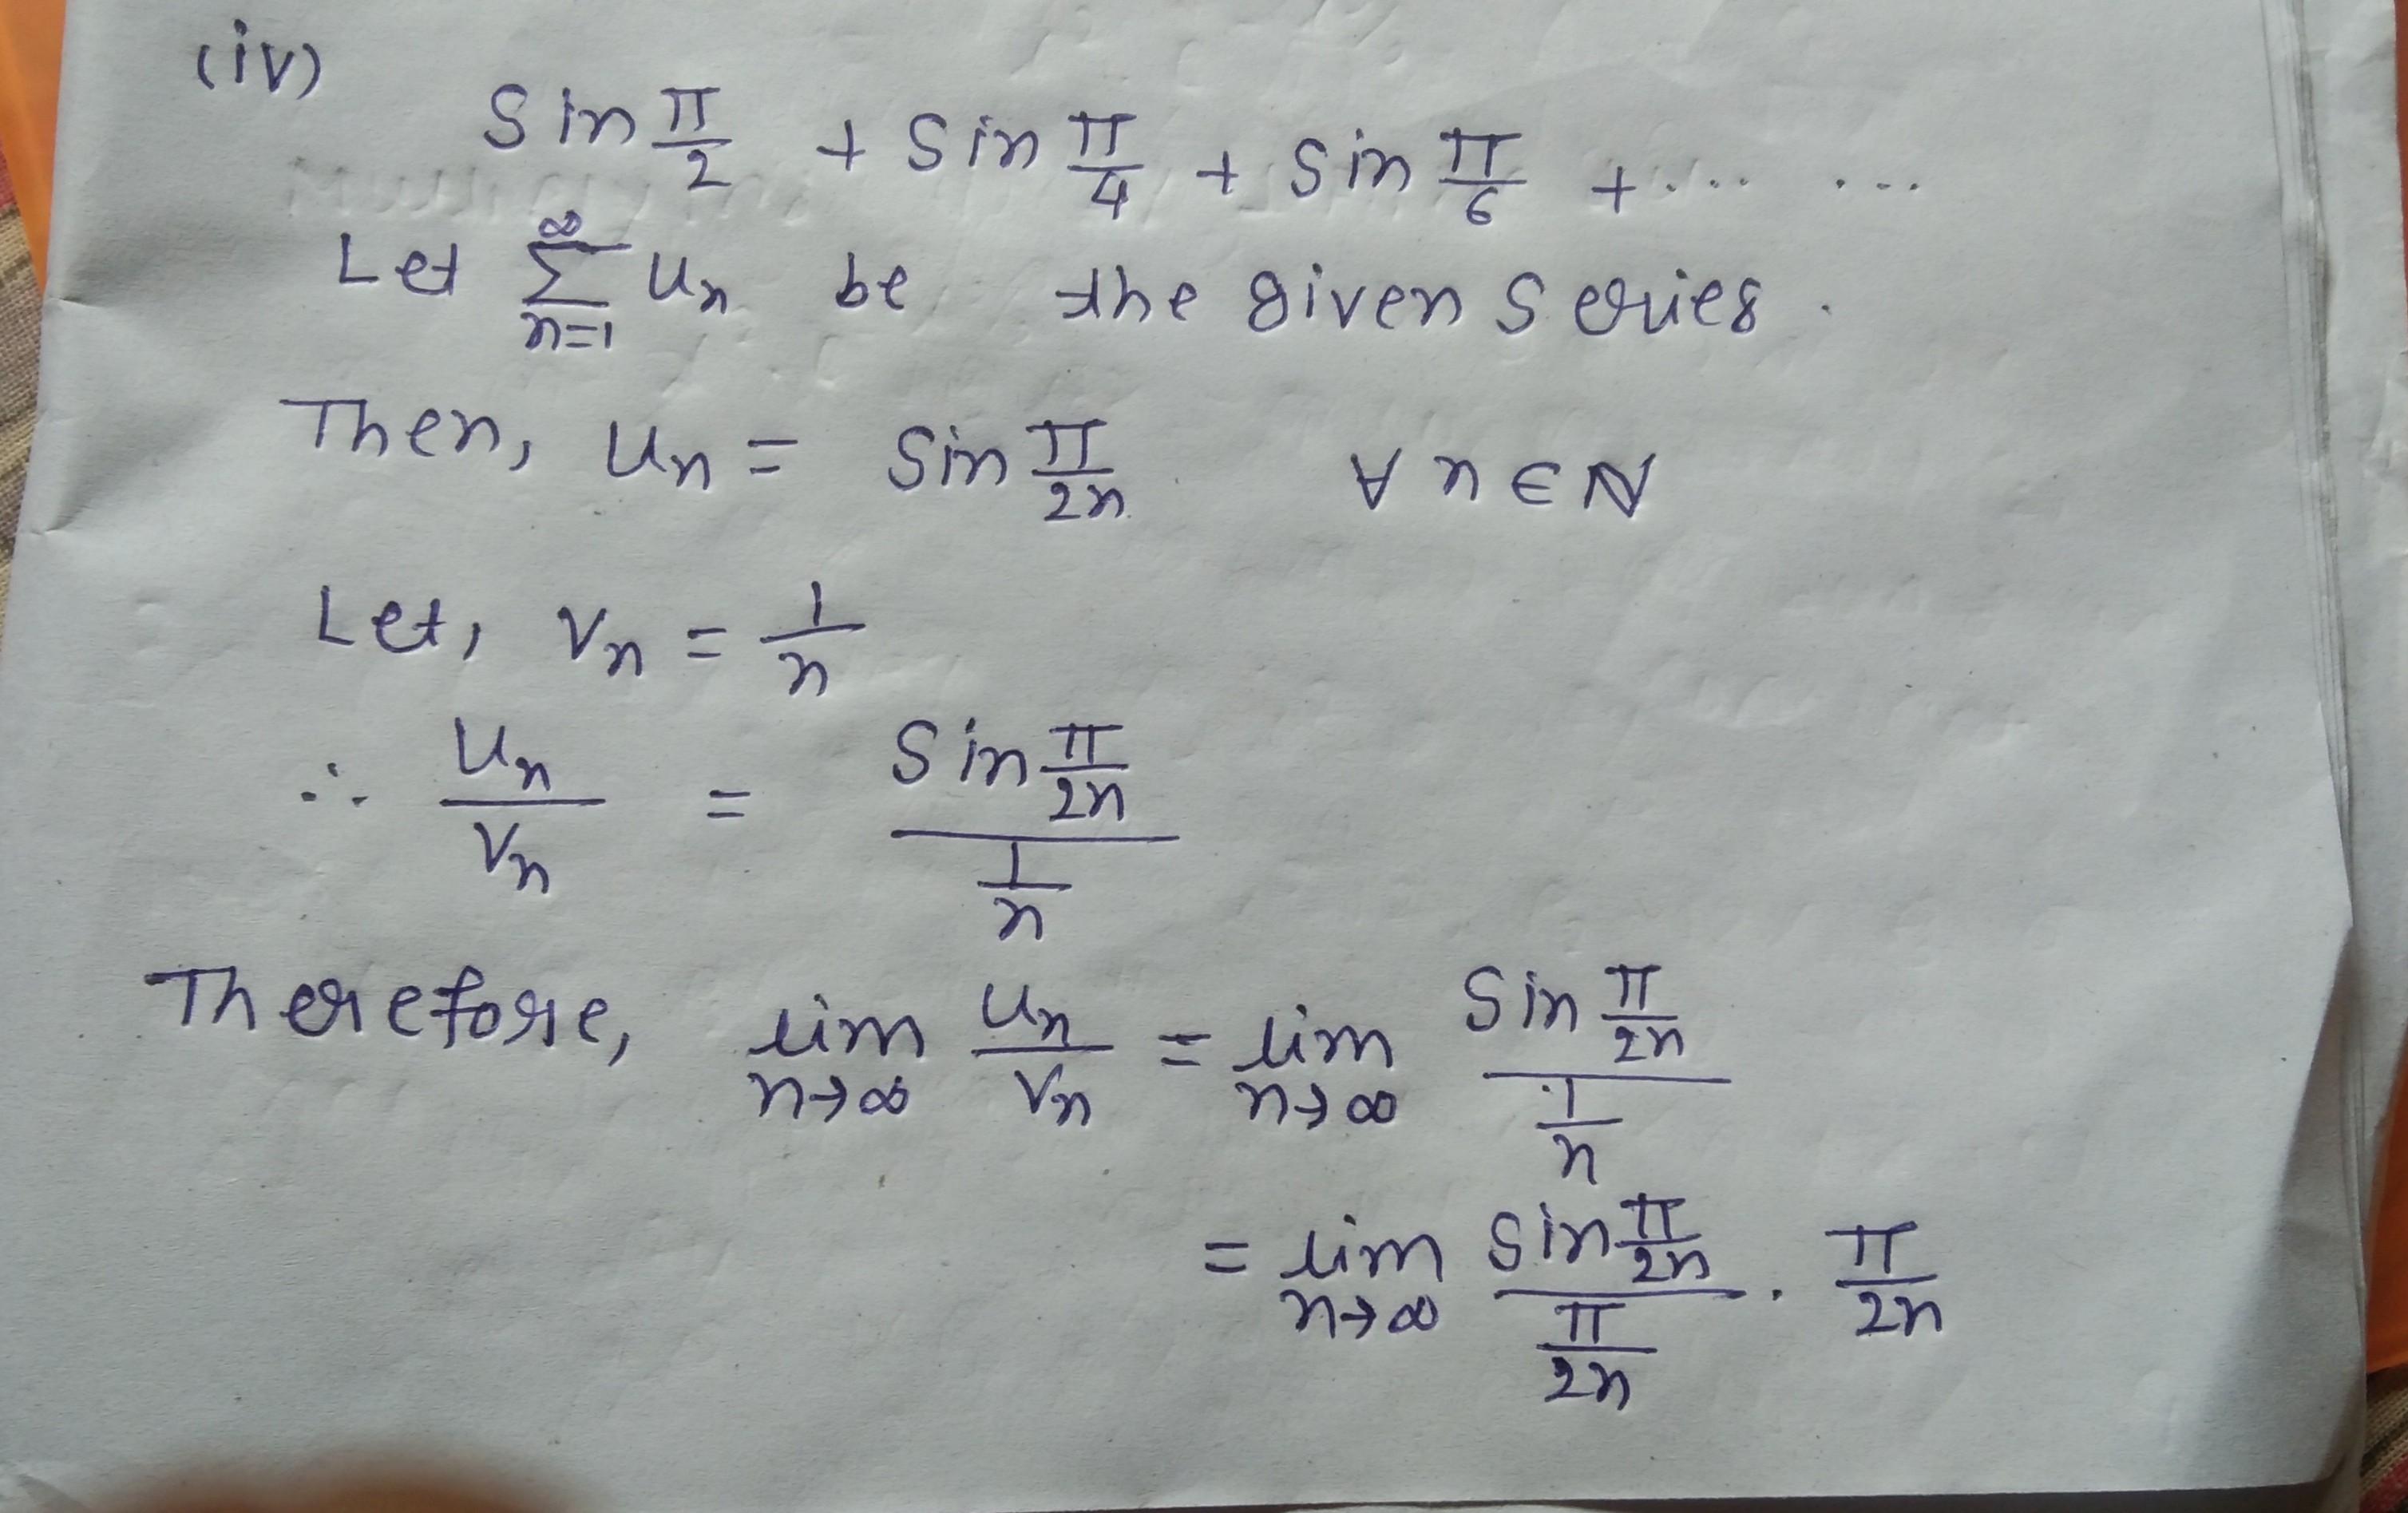 (iv)
Sin π/2 + Sin π/4 + Sin π/6 + ... ...
Let ∑_{n=1}^{∞} u_n be the given series.
Then, u_n = Sin π/2n ∀ n ∈ N
Let, v_n = 1/n
∴ u_n/v_n = (Sin π/2n)/(1/n)
Therefore, lim_{n→∞} u_n/v_n = lim_{n→∞} (Sin π/2n)/(1/n)
= lim_{n→∞} (Sin π/2n)/(π/2n) . π/2n